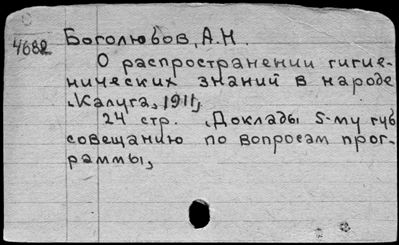 Боголюбов, А.Н.
4682
О распространении гигие-
нических знаний в народе
Калуга, 1911,
24 стр. Доклады 5-му губ
совещанию по вопросам прог-
раммы,